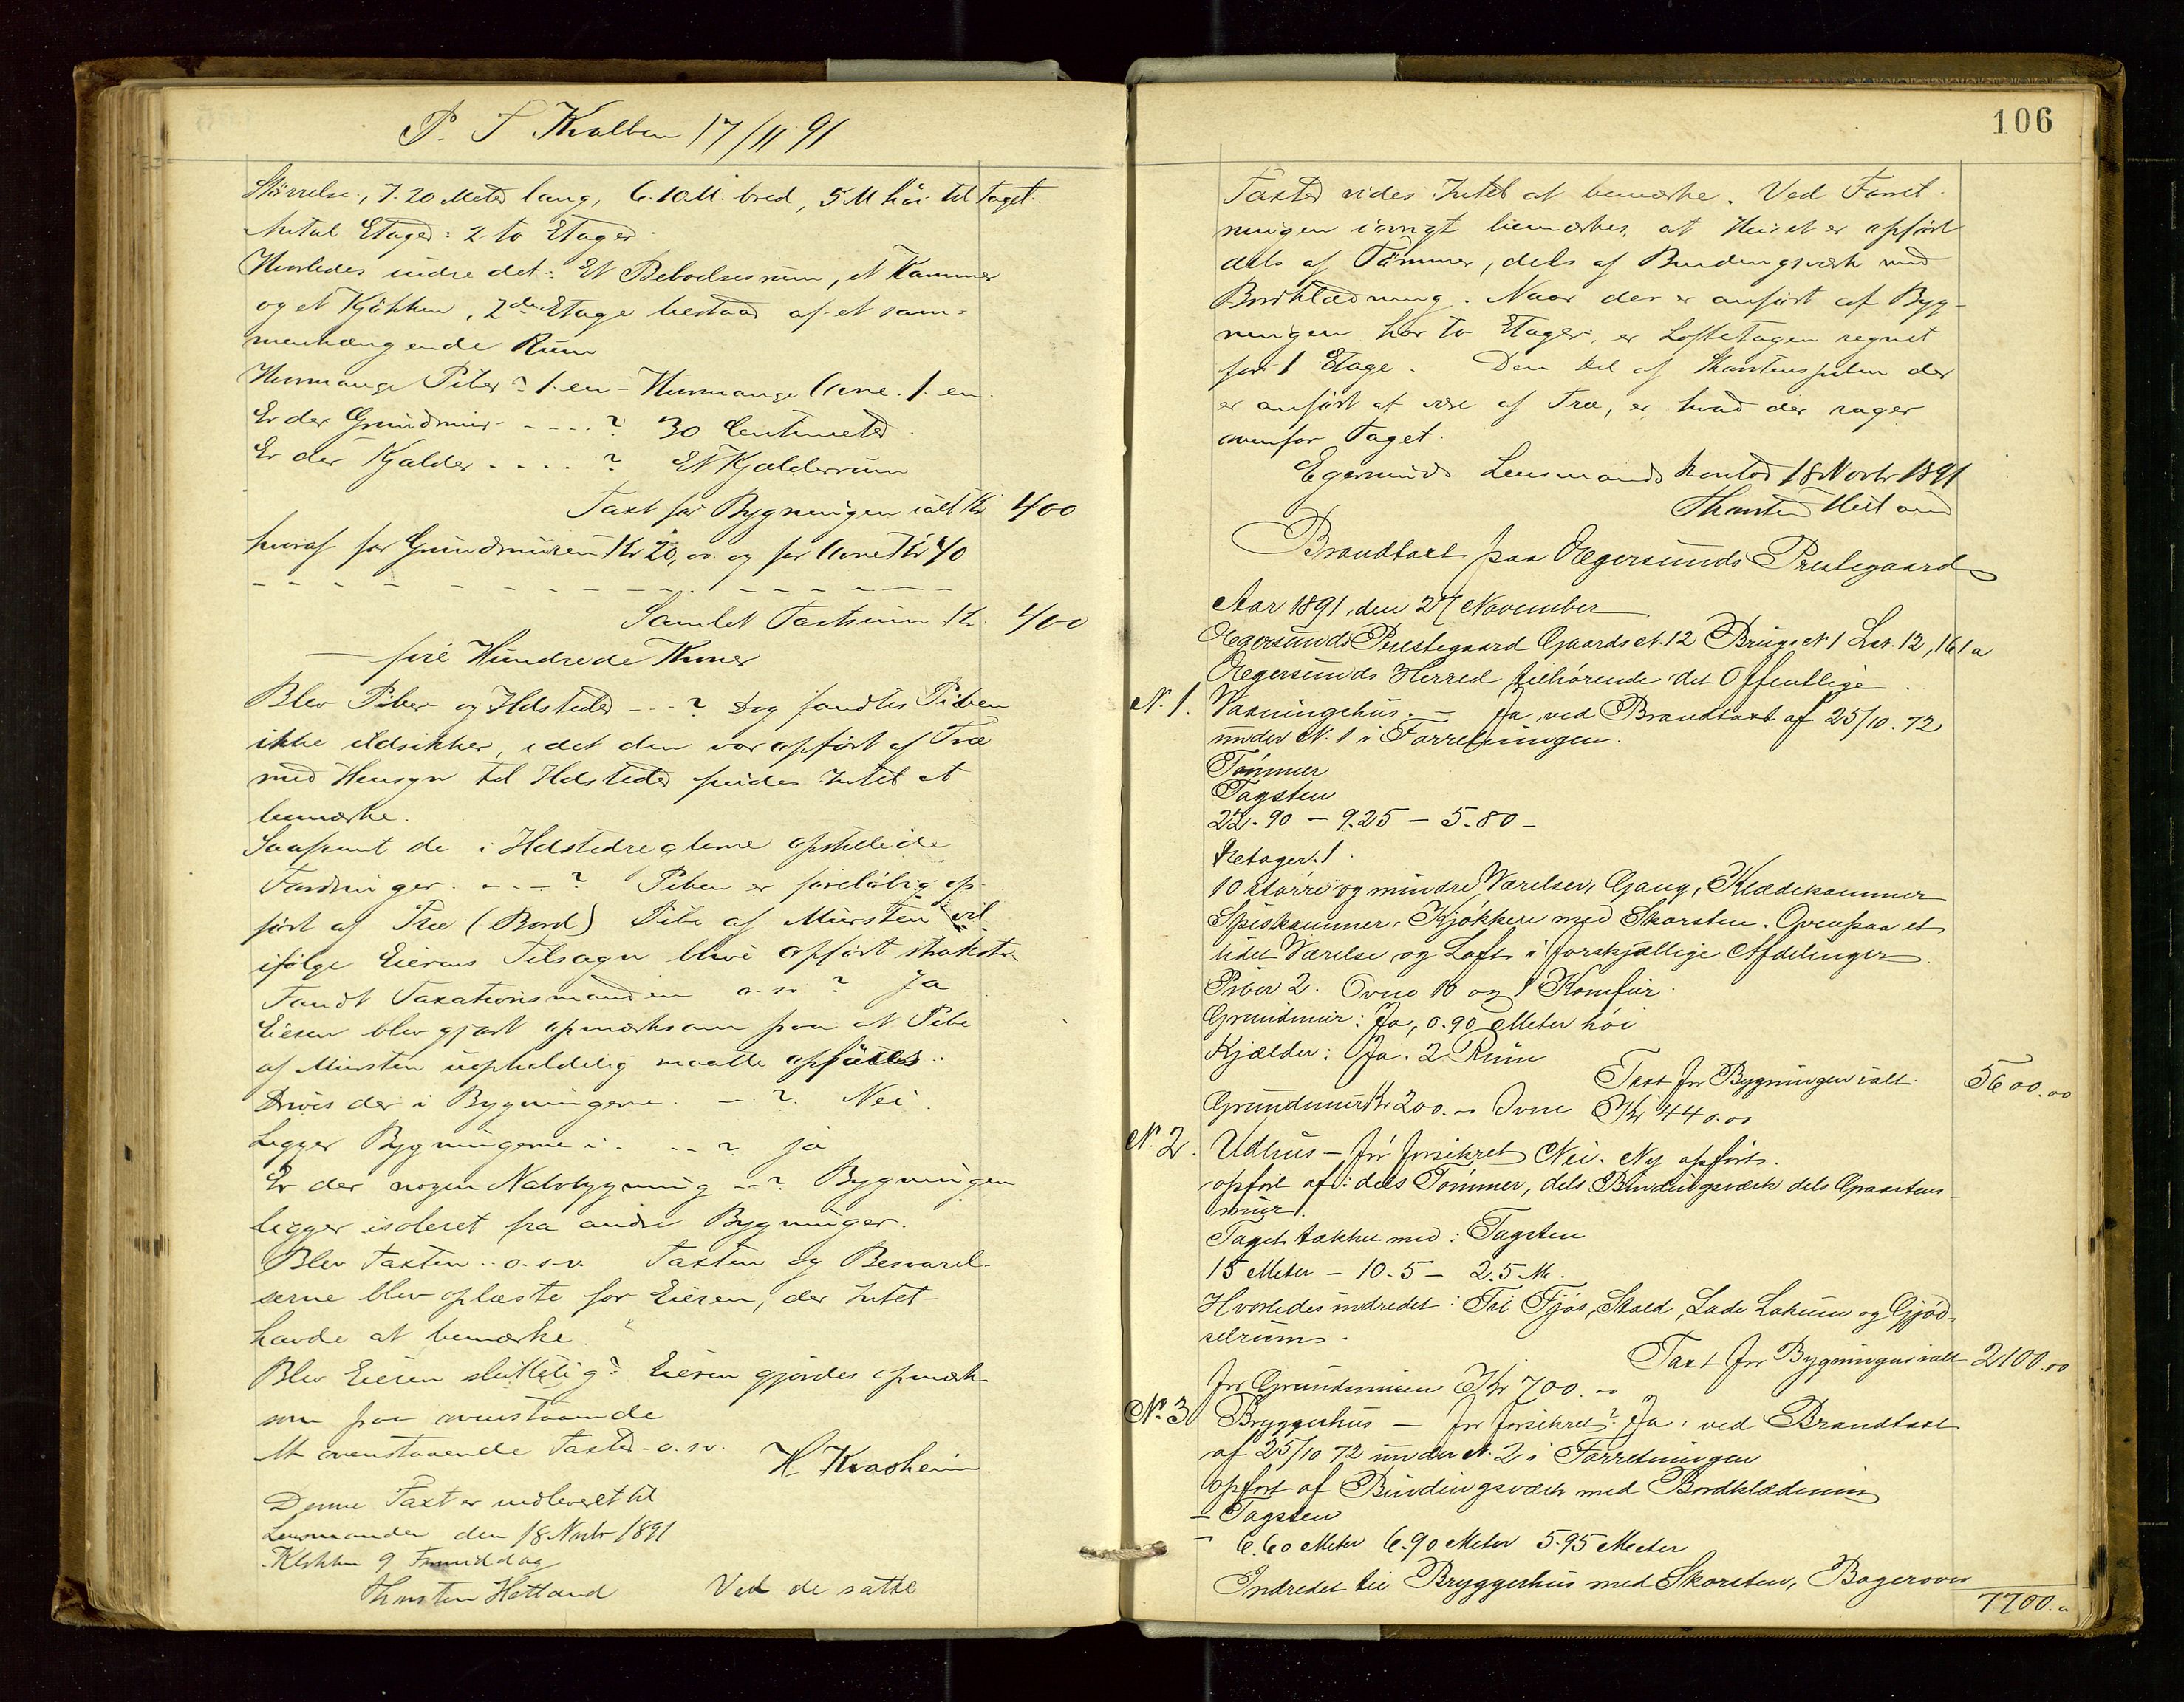 P. S Kvalben 17/11 91
Størrelse, 7.20 Meter lang, 6.10 M. bred, 5 M høi til taget.
Antal Etager: 2 to Etager.
Hvorledes indredet: Et Beboelsesrum, et Kammer
og et Kjøkken, 2den Etage bestaar af et sam-
menhængende Rum
Hvormange Piber? 1. en - Hvormange Ovne. 1. en.
Er der Grundmur - - - - ? 30 Centimeter.
Er der Kjælder . . . . ? Et Kjælderrum
Taxt for Bygningen ialt Kr. 400
hvoraf for Grundmuren Kr 20,00. og for Ovne Kr 40
Samlet Taxtsum Kr. 400
— fire Hundrede Kroner
Blev Piber og Ildsteder - - - ? Dog fandtes Piben
ikke ildsikker, idet den var opført af Træ
med Hensyn til Ildsteder findes Intet at
bemærke.
Saafremt de i Ildstedreglerne opstillede
Fordringer. - - - ? Piben er foreløbig op-
ført af Træ (Bord) Pibe af Mursten vil
ifølge Eierens Tilsagn blive opført straks
Fandt Taxationsmændene o.s.v? Ja
Eieren blev gjort opmærksom paa at Pibe
af Mursten uopholdelig maatte opføres..
Drives der i Bygningerne. - ? Nei.
Ligger Bygningerne i. . - - ? ja
Er der nogen Nabobygning - - ? Bygningen
ligger isoleret fra andre Bygninger.
Blev Taxten .. o.s.v. Taxten og Besvarel-
serne blev oplæste for Eieren, der Intet
havde at bemærke.
Blev Eieren sluttelig? Eieren gjordes opmærk-
som paa ovenstaaende
At ovenstaaende Taxter - o.s.v. H Kvasheim
Denne Taxt er indleveret til
Lensmanden den 18 Novbr 1891
Klokken 9 Formiddag
Thorsten Hetland Ved de satte
106
Taxter vides Intet at bemærke. Ved Forret-
ningen iøvrigt bemærkes, at Huset er opført
dels af Tømmer, dels af Bindingsværk med
Bordklædning. Naar der er anført af Byg-
ningen har to Etager, er Loftetagen regnet
for 1 Etage. Den Del af Skorstenspiben der
er anført at være af Træ, er hvad der rager
ovenfor Taget.
Egersunds Lensmandskontor 18 Novbr 1891
Thorsten Hetland
Brandtaxt paa Ægersunds Prestegaard
Aar 1891, den 27 November
Ægersunds Prestegaard Gaards N. 12 Brugs N 1 Lnr. 12, 161a
Ægersunds Herred tilhørende det Offentlige.
N. 1. Vaaningshus. — Ja, ved Brandtaxt af 25/10. 72
under N. 1 i Forretningen.
Tømmer
Tagsten
22.90 — 9.25 — 5.80 —
Etager. 1.
10 større og mindre Værelser, Gang, Klædekammer
Spiskammer, Kjøkken med Skorsten. Ovenpaa et
lidet Værelse og Loft i forskjællige Afdelinger
Piber 2. Ovne 10 og 1 Komfur.
Grundmur: Ja, 0.90 Meter høi
Kjælder: Ja. 2 Rum
Taxt for Bygningen ialt. 5600.00
Grundmur Kr 200. — Ovne Kr 440.00
N. 2. Udhus — før forsikret Nei. Ny opført.
opført af: dels Tømmer, dels Bindingsværk dels Graastens-
mur.
Taget tækket med: Tagsten
15 Meter — 10.5 — 2.5 M.
Hvorledes indredet: Til Fjøs, Stald, Lade Laderum og Gjød-
selrum.
Taxt for Bygningen ialt 2100.00
for Grundmuren Kr 700.00
No. 3 Bryggerhus — før forsikret? Ja, ved Brandtaxt
af 25/10 72 under N. 2 i Forretningen
opført af Bindingsværk med Bordklædning
— Tagsten
— 6.60 Meter 6.90 Meter 5.95 Meter
Indredet til Bryggerhus med Skorsten, Bagerovn
7700.00